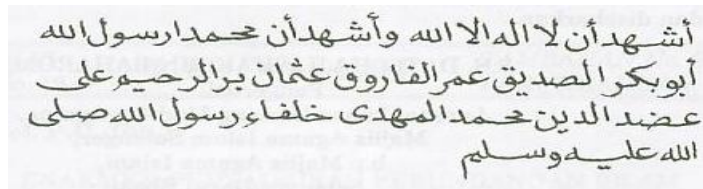 أشهد أن لا اله الا الله وأشهد أن محمدا رسول الله
أبو بكر الصديق عمر الفاروق عثمان برالرحيم على
عضد الدين محمد المهدى خلفاء رسول الله صلى
الله عليه وسلم